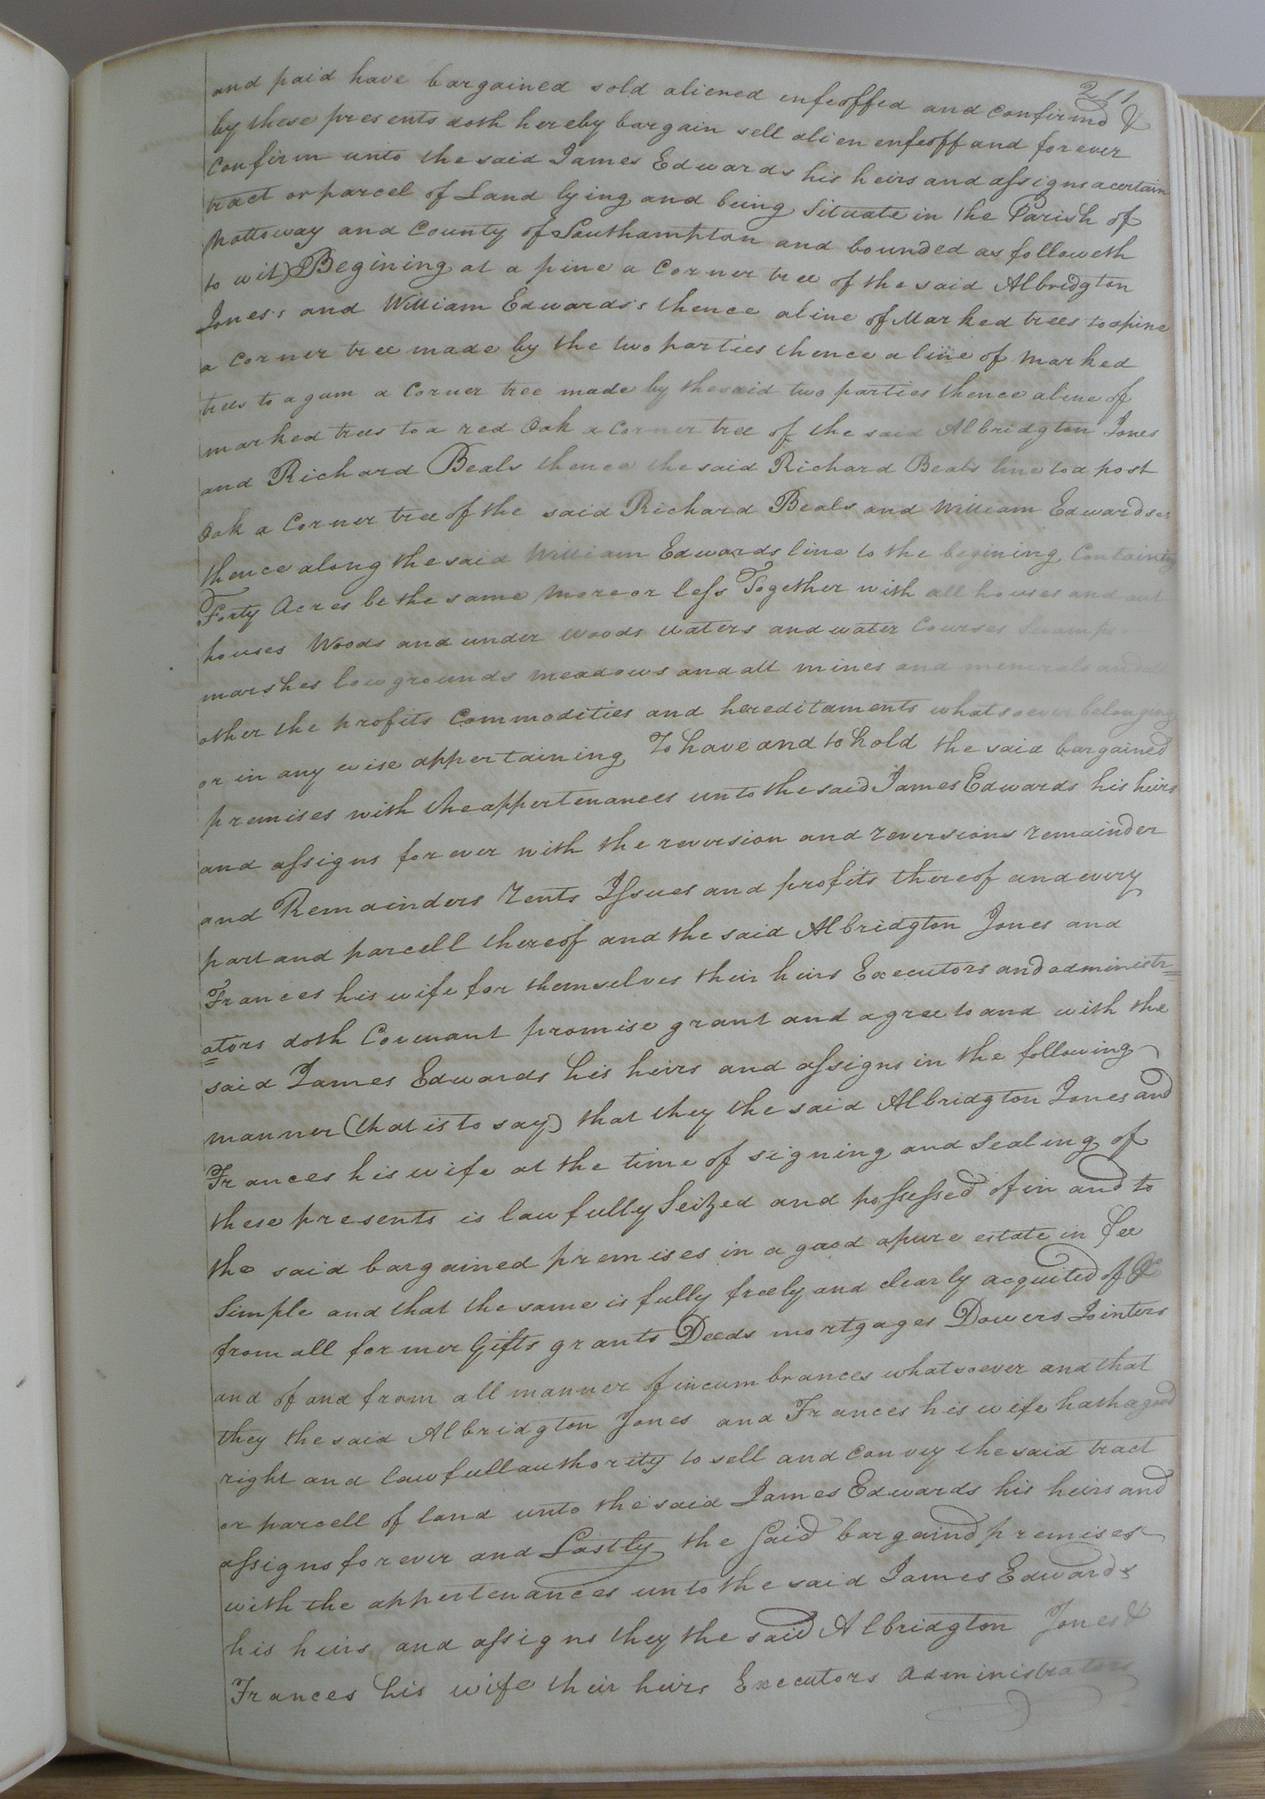 211
and paid have bargained sold aliened enfeoffed and confirmd &
by these presents doth hereby bargain sell alien enfeoff and forever
Confirm unto the said James Edwards his heirs and assigns a certain
tract or parcel of Land lying and being Situate in the Parish of
Nottoway and County of Southampton and bounded as followeth
to wit) Begining at a pine a Corner tree of the said Albridgton
Jones's and William Edwards's thence a line of Marked trees to a pine
a Corner tree made by the two parties thence a line of marked
trees to a gum a Corner tree made by the said two parties thence a line of
marked trees to a red Oak a corner tree of the said Albridgton Jones
and Richard Beals thence the said Richard Beals line to a post
Oak a Corner tree of the said Richard Beals and William Edwards's
thence along the said William Edwards line to the begining Containing
Forty Acres be the same more or less Together with all houses and out
houses Woods and under woods waters and water Courses Swamps
marshes low grounds meadows and all mines and minerals and all
other the profits Commodities and hereditaments whatsoever belonging
or in any wise appertaining To have and to hold the said bargained
premises with the appertenances unto the said James Edwards his heirs
and assigns forever with the reversion and reversions remainder
and Remainders rents Issues and profits thereof and every
part and parcell thereof and the said Albridgton Jones and
Frances his wife for themselves their heirs Executors and administr=
=ators doth Covenant promise grant and agree to and with the
said James Edwards his heirs and assigns in the following
manner (that is to say) that they the said Albridgton Jones and
Frances his wife at the time of signing and Sealing of
these presents is lawfully Seized and possessed of in and to
the said bargained premises in a good a pure estate in fee
Simple and that the same is fully freely and clearly acquited of &
from all former Gifts grants Deeds mortgages Dowers Jointers
and of and from all manner of incumbrances whatsoever and that
they the said Albridgton Jones and Frances his wife hath a good
right and lawfull authority to sell and convey the said tract
or parcell of land unto the said James Edwards his heirs and
assigns forever and Lastly the Said bargaind premises
with the appertenances unto the said James Edwards
his heirs and assigns they the said Albridgton Jones &
Frances his wife their heirs Executors administrators